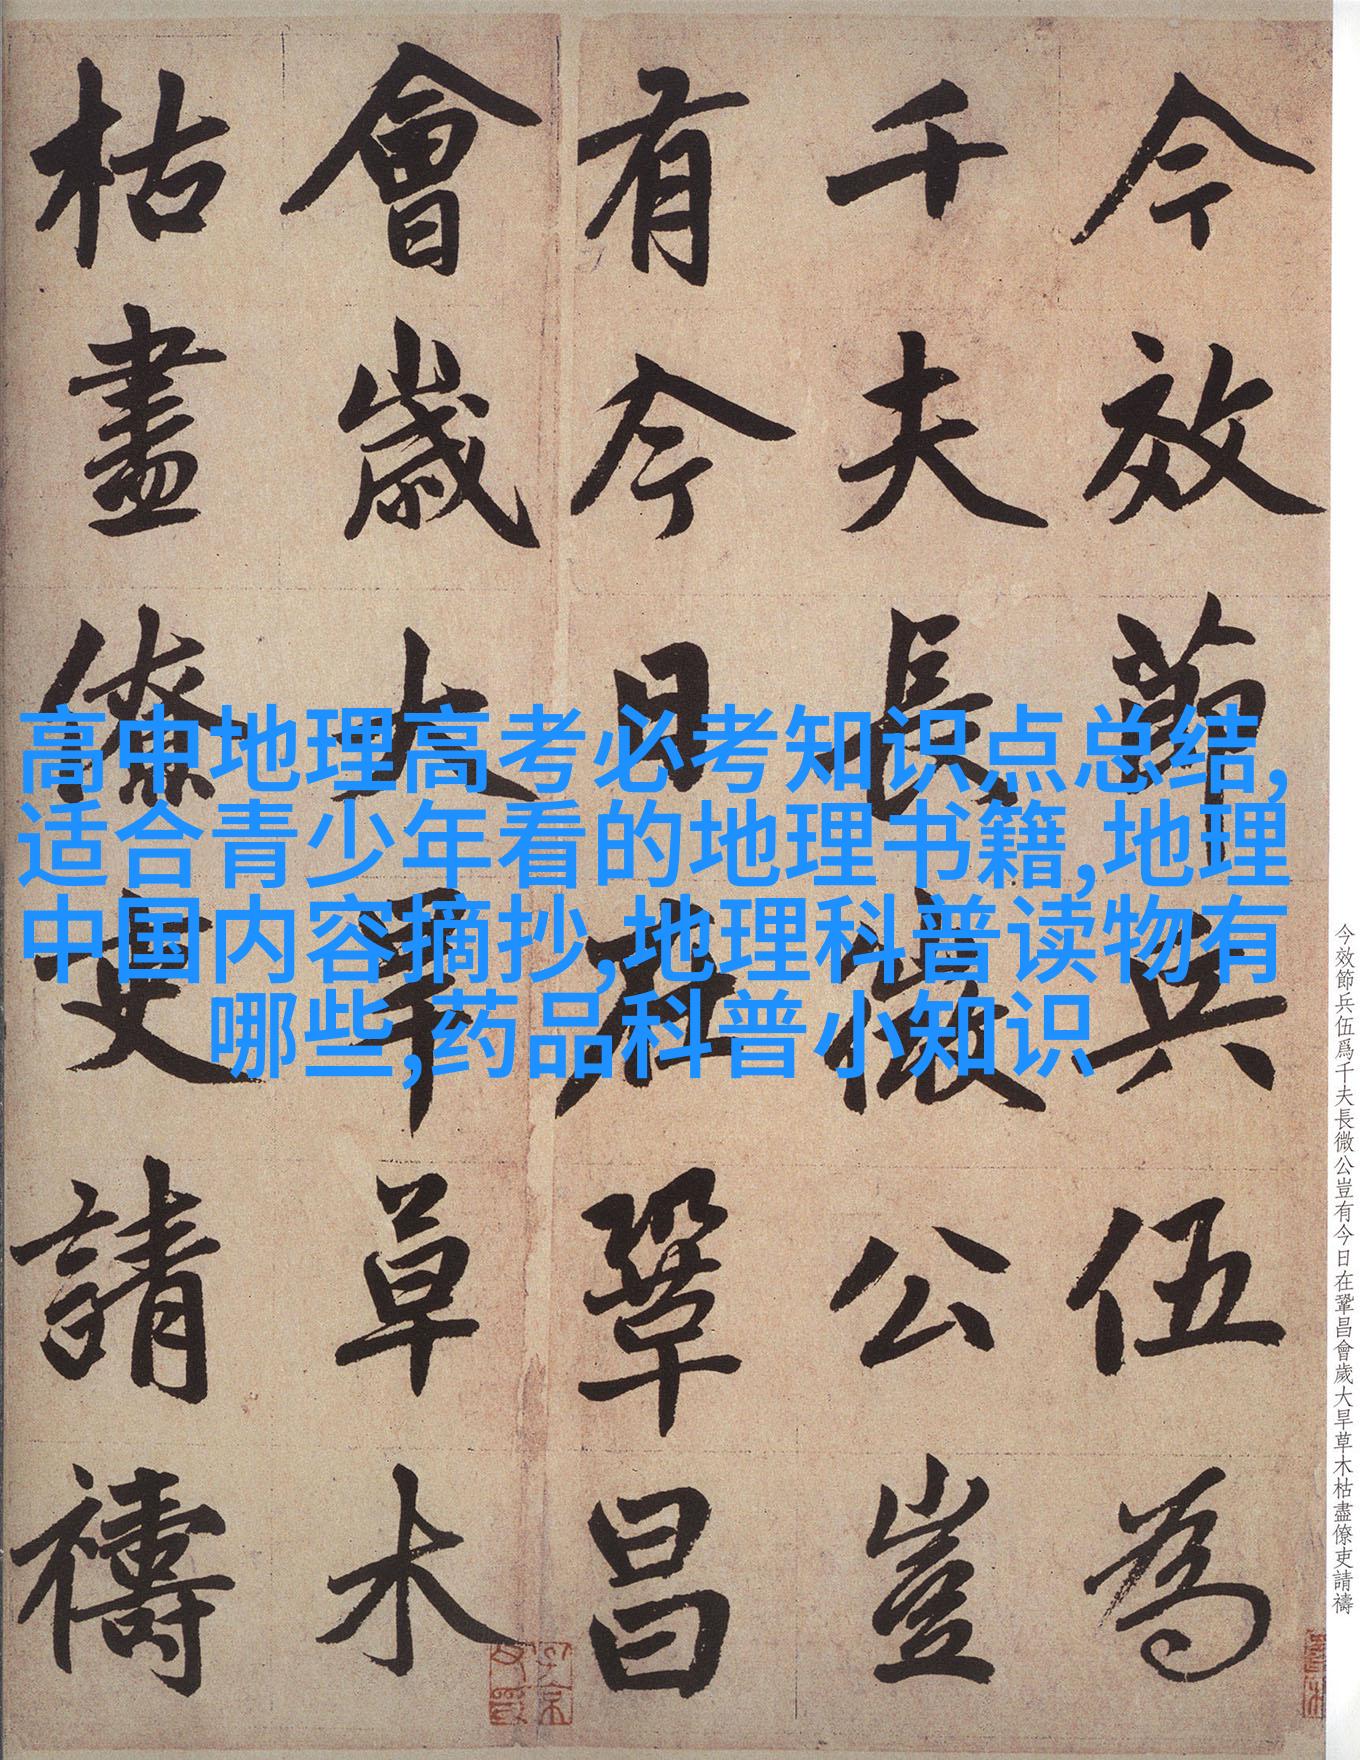 高中地理高考必考知识点总结,
适合青少年看的地理书籍,地理
中国内容摘抄,地理科普读物有
哪些,药品科普小知识
今效節兵伍為
千夫長微公豈
有今日在鞏昌
會歲大旱草木
枯盡僚吏請禱
今效節兵伍爲千夫長微公豈有今日在鞏昌會歲大旱草木枯盡僚吏請禱